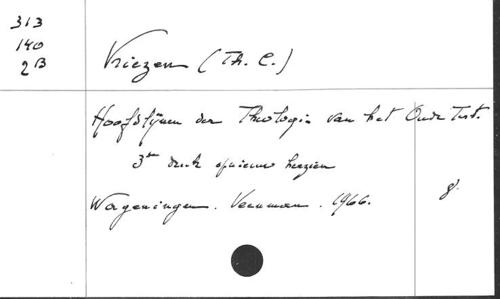 313
140
2B
Vriezen (Th. C.)
Hoofdlijnen der Theologie van het Oude Test.
3de druk opnieuw herzien
Wageningen. Veenman. 1966.
8°